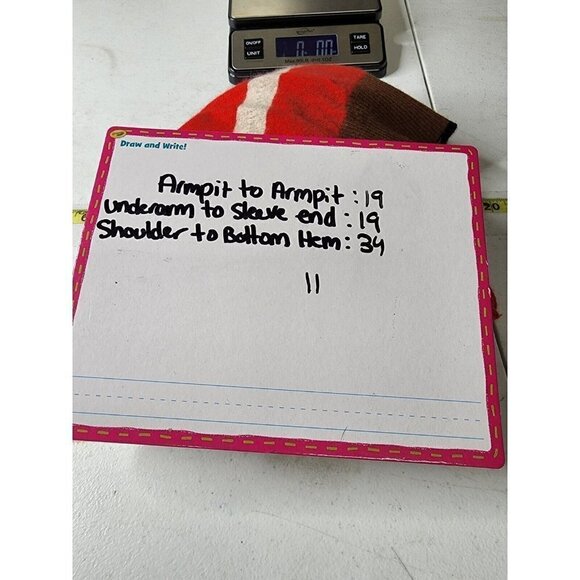 ON/OFF
UNIT
0. 00
TARE
HOLD
Draw and Write!
Armpit to Armpit : 19
underarm to Sleeve end : 19
Shoulder to Bottom Hem : 34
11
20